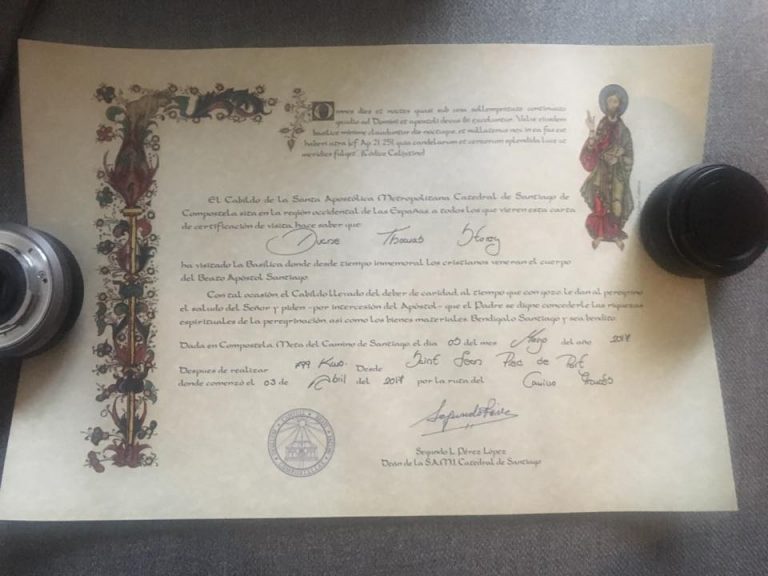 Omnes dies et noctes quasi sub una sollempnitate continuato
gaudio ad Domini et apostoli decus ibi excoluntur. Valve eiusdem
basilice minime clauduntur die noctuque, et nullatenus nox in ea fas est
haberi atra (cf. Ap 21, 25), quia candelarum et cereorum splendida luce ut
meridies fulget. (Códice Calixtino)
El Cabildo de la Santa Apostólica Metropolitana Catedral de Santiago de
Compostela sita en la región occidental de las Españas a todos los que vieren esta carta
de certificación de visita, hace saber que:
Thomas
ha visitado la Basílica donde desde tiempo inmemorial los cristianos veneran el cuerpo
del Beato Apóstol Santiago.
Con tal ocasión el Cabildo llevado del deber de caridad, al tiempo que con gozo le dan al peregrino
el saludo del Señor y piden -por intercesión del Apóstol- que el Padre se digne concederle las riquezas
espirituales de la peregrinación, así como los bienes materiales. Bendígalo Santiago y sea bendito.
Dada en Compostela, Meta del Camino de Santiago el día 05 del mes Mayo del año 2017
Después de realizar 799 Kms. Desde Saint Jean Pied de Port
donde comenzó el 03 de Abril del 2017 por la ruta del Camino Francés
Segundo L. Pérez López
Deán de la S.A.M.I. Catedral de Santiago